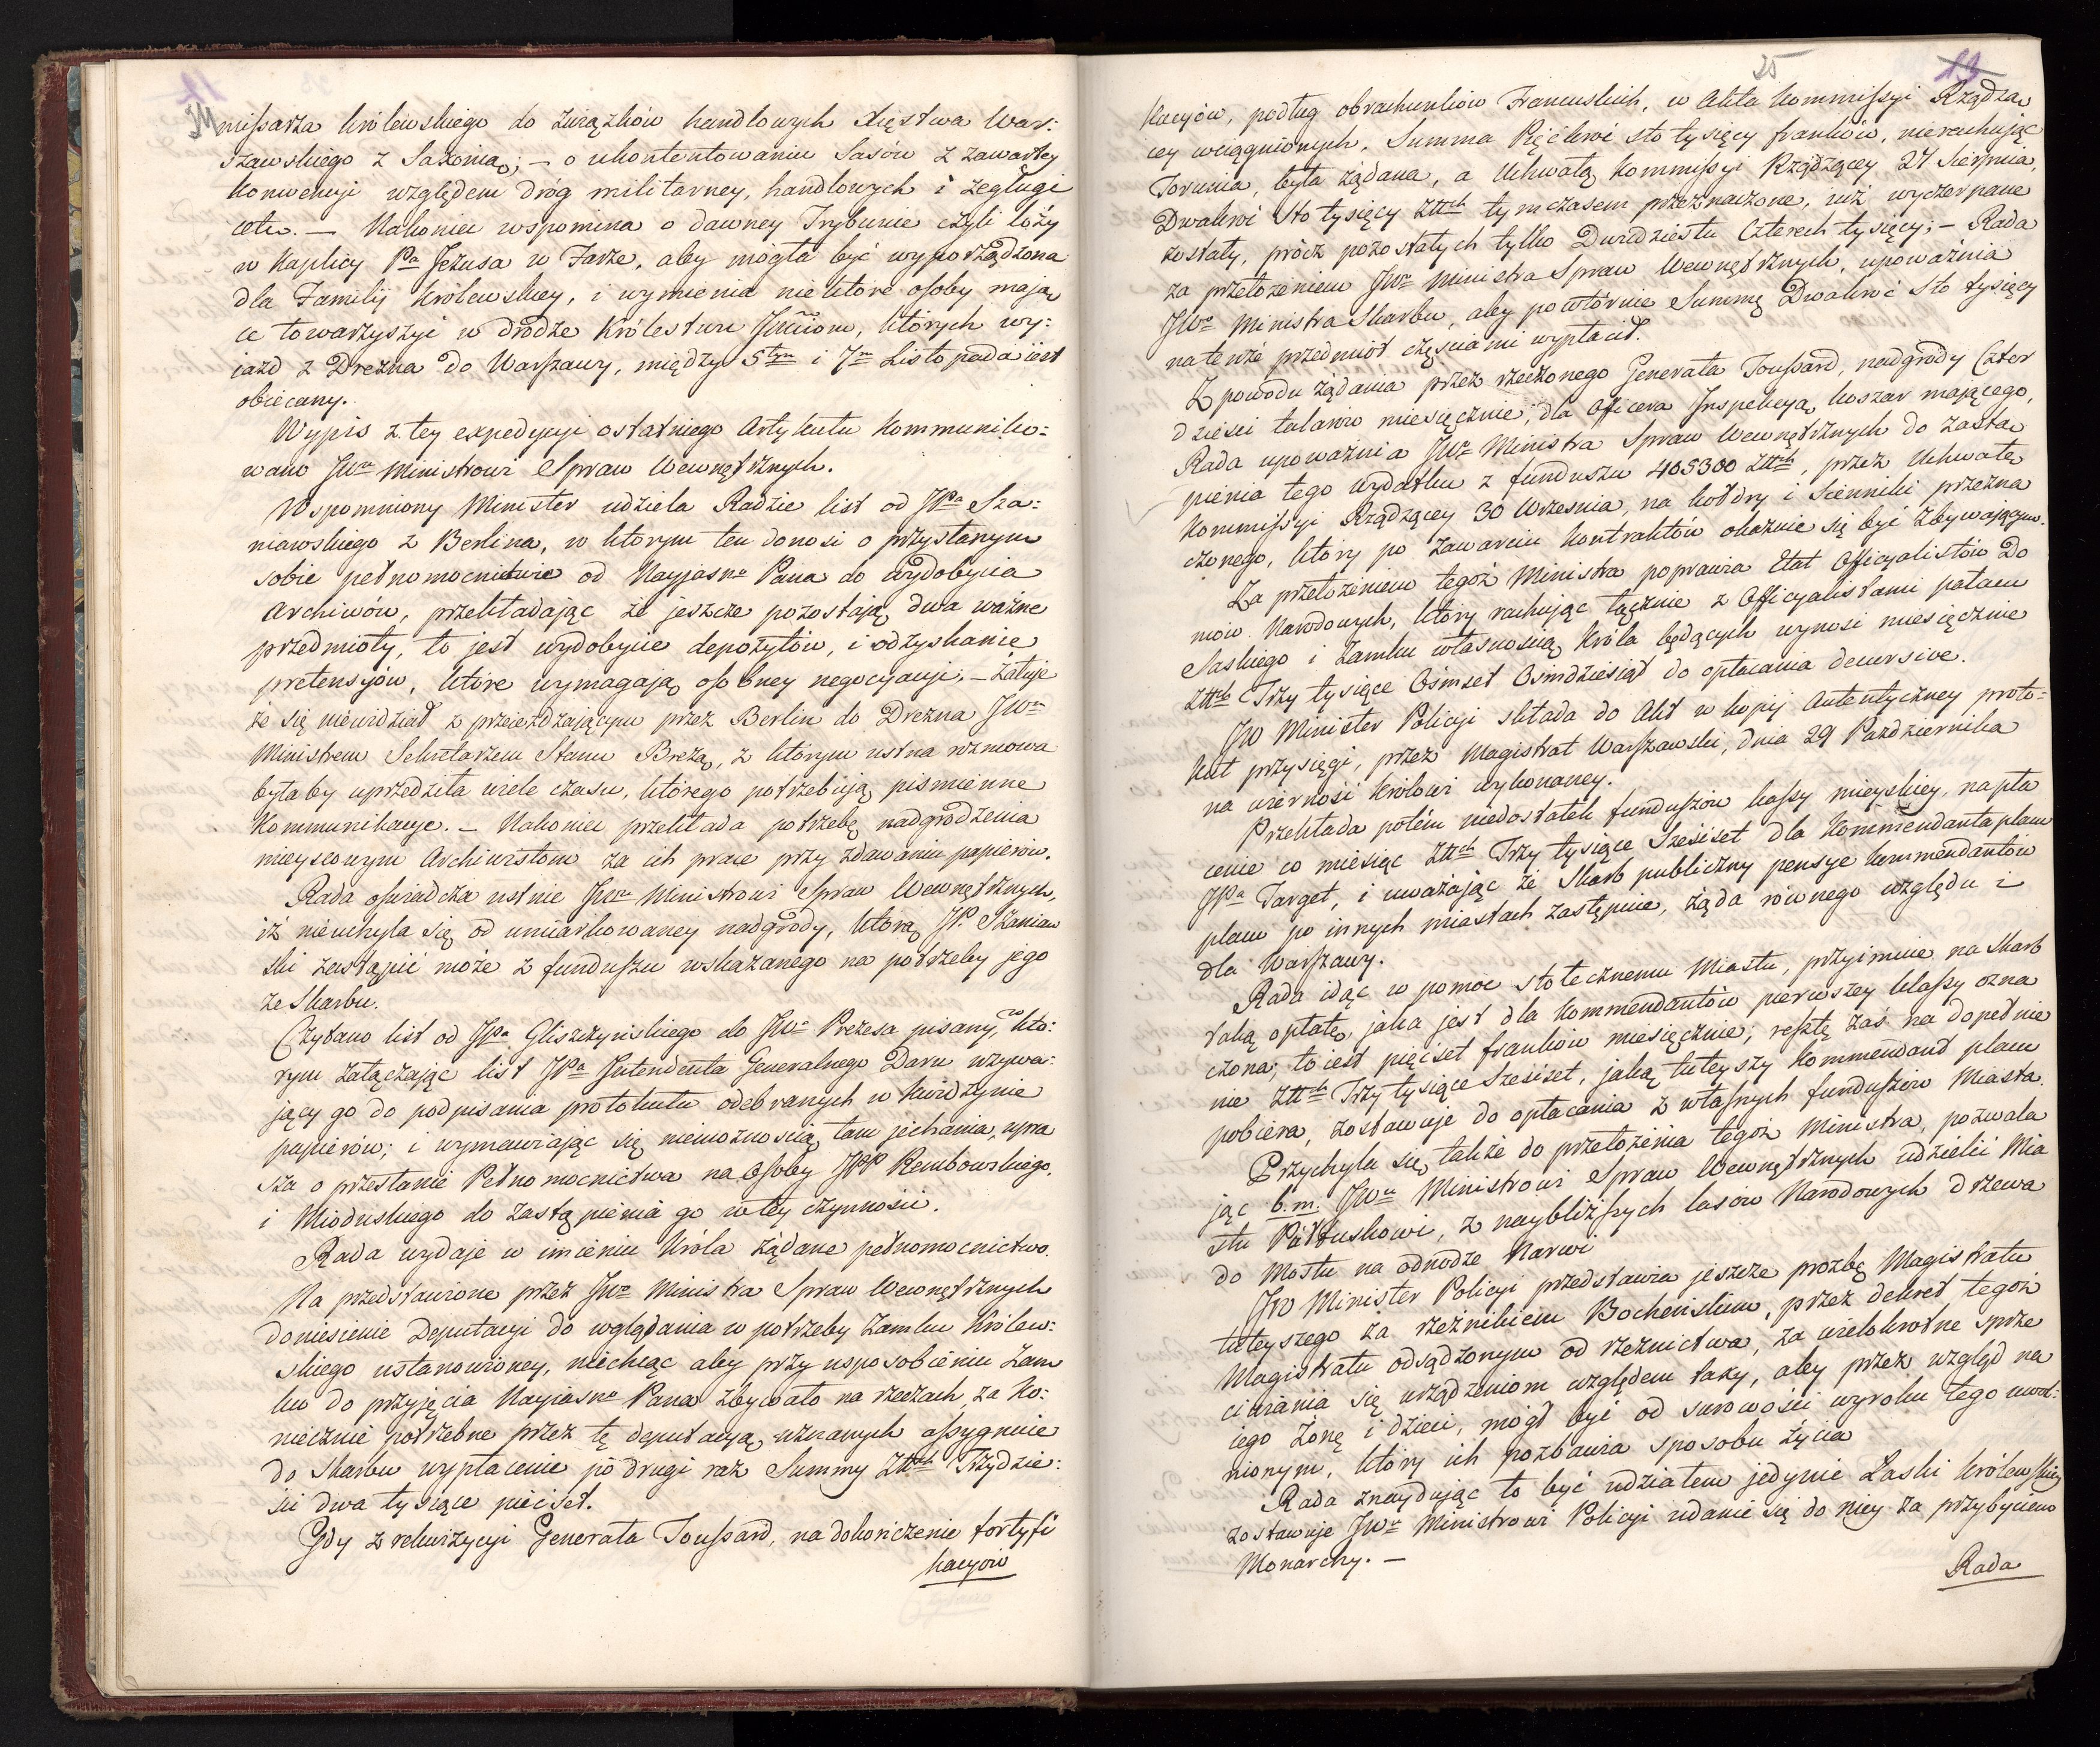 24
missarza królewskiego do związków handlowych Xięstwa War:
szawskiego z Saxonią; – o ukontentowaniu Sasów z zawartey
Konwencyi względem dróg militarney, handlowych i żeglugi
cetr. – Nakoniec wspomina o dawney Trybunie czyli loży
w Kaplicy Pa Jezusa w Farze, aby mogła być wyporządzona
dla Familij Królewskiey, i wymienia niektóre osoby mają
ce towarzyszyć w drodze Królestwu Jchmciom, których wy:
iazd z Drezna do Warszawy, między 5tym i 7m Listopada iest
obiecany.
Wypis z tey expedycyi ostatniego Artykułu kommuniko=
wano JWmu Ministrowi Spraw Wewnętrznych.
Wspomniony Minister udziela Radzie list od JPa Sza=
niawskiego z Berlina, w którym ten donosi o przysłanym
sobie pełnomocnictwie od Nayjasno Pana do wydobycia
Archiwów, przekładając że jeszcze pozostają dwa ważne
przedmioty, to jest wydobycie depozytów, i odzyskanie
pretensyów, które wymagają osobney negocyacyi; – żałuje
że się niewidział z przeieżdżającym przez Berlin do Drezna JWm
Ministrem Sekretarzem Stanu Brezą, z którym ustna rozmowa
byłaby uprzedziła wiele czasu, którego potrzebują piśmienne
Kommunikacye. – Nakoniec przekłada potrzebę nadgrodzenia
mieyscowym Archiwistom za ich prace przy zdawaniu papierów.
Rada oświadcza ustnie JWmu Ministrowi Spraw Wewnętrznych,
iż nieuchyla się od umiarkowaney nadgrody, którą JP. Szaniaw
ski zastąpić może z funduszu wskazanego na potrzeby jego
ze Skarbu.
Czytano list od JPa Gliszczyńskiego do JWo Prezesa pisany, w któ:
rym załączając list JPa Intendenta Generalnego Daru wzywa:
jący go do podpisania protokułu odebranych w Kwidzynie
papierów; i wymawiając się niemożnością tam jechania, upra
sza o przesłanie Pełnomocnictwa na Osoby JPP Rembowskiego.
i Mioduskiego do zastąpienia go w tey czynności.
Rada wydaje w imieniu Króla żądane pełnomocnictwo.
Na przedstawione przez JWo Ministra Spraw Wewnętrznych
doniesienie Deputacyi do wglądania w potrzeby Zamku Królew:
skiego ustanowioney, niechcąc aby przy usposobieniu Zam
ku do przyjęcia Nayiasno Pana zbywało na rzeczach za Ko:
niecznie potrzebne przez tę deputacyą uznanych assygnuie
do Skarbu wypłacenie po drugi raz Summy Złtch Trzydzie:
ści dwa tysiące pięćset.
Gdy z rekwizycyi Generała Toussard, na dokończenie fortyfi
kacyów
25
19
kacyów, podług obrachunków Francuskich, w Akta Kommissyi Rządzą
cey wciągnionych, Summa Pięćkroć sto tysięcy franków, nierachując
Torunia, była żądana, a Uchwałą Kommissyi Rządzącey 27 Sierpnia,
Dwakroć Sto tysięcy Złtch tymczasem przeznaczone, już wyczerpane
zostały, prócz pozostałych tylko Dwudziestu Czterech tysięcy; – Rada
za przełożeniem JWo Ministra Spraw Wewnętrznych, upoważnia
JWo Ministra Skarbu, aby powtórnie Summę Dwakroć Sto tysięcy
na tenże przedmiot częściami wypłacił.
Z powodu żądania przez rzeczonego Generała Toussard, nadgrody Czter
dzieści talarów miesięcznie, dla Officera Inspekcyą koszar mającego,
Rada upoważnia JWo Ministra Spraw Wewnętrznych do zastą
pienia tego wydatku z funduszu 405300 Złtch, przez Uchwałę
Kommissyi Rządzącey 30 Września, na kołdry i sienniki przezna
czonego, który po zawarciu kontraktów okaznie się być zbywającym.
Za przełożeniem tegoż Ministra poprawia Etat Officyalistów Do
mów Narodowych, który rachując łącznie z Officyalistami pałacu
Saskiego i Zamku własnością Króla będących wynosi miesięcznie
Złtch Trzy tysiące Ośmset Ośmdziesiąt do opłacania decursive.
JW Minister Policyi składa do Akt w kopij Autentyczney proto=
kuł przysięgi, przez Magistrat Warszawski, dnia 29 Października
na wierność Królowi wykonaney.
Przekłada potem niedostatek funduszów kassy mieyskiey, na pła
cenie co miesiąc Złtch Trzy tysiące Sześćset dla Kommendanta placu
JPa Target, i uważając że Skarb publiczny pensye kommendantów
placu po innych miastach zastępuie, żąda równego względu i
dla Warszawy.
Rada idąc w pomoc stołecznemu Miastu, przyimuie na Skarb
taką opłatę, jaka jest dla Kommendantów pierwszey klassy ozna
czona; to iest pięćset franków miesięcznie; resztę zaś na dopełnie
nie Złtch Trzy tysiące Sześćset, jaką tuteyszy Kommendant placu
pobiera, zostawuje do opłacania z własnych funduszów Miasta.
Przychyla się także do przełożenia tegoż Ministra, pozwala
jąc b. m. JWu Ministrowi Spraw Wewnętrznych udzielić Mia
stu Pułtuskowi, z naybliższych lasów Narodowych drzewa
do Mostu na odnodze Narwi
JW Minister Policyi przedstawia jeszcze prozbę Magistratu
tuteyszego za rzeźnikiem Bocheńskim, przez dekret tegoż
Magistratu odsądzonym od rzeźnictwa, za wielokrotne sprze
ciwiania się urządzeniom względem taxy, aby przez wzgląd na
iego żonę i dzieci, mógł być od surowości wyroku tego uwol:
nionym, który ich pozbawia sposobu życia
Rada znaydując to być udziałem jedynie Łaski Królewskiey
zostawuje JWu Ministrowi Policyi udanie się do niey za przybyciem
Monarchy. –
Rada